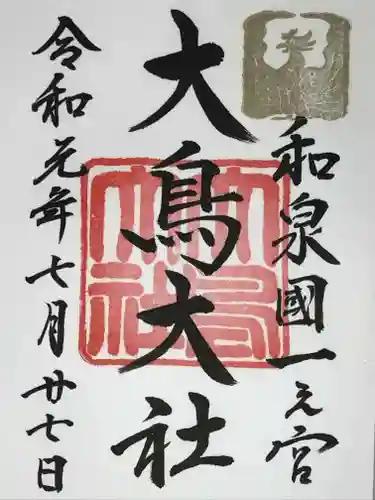 和泉國一之宮
大鳥大社
令和元年七月廿七日